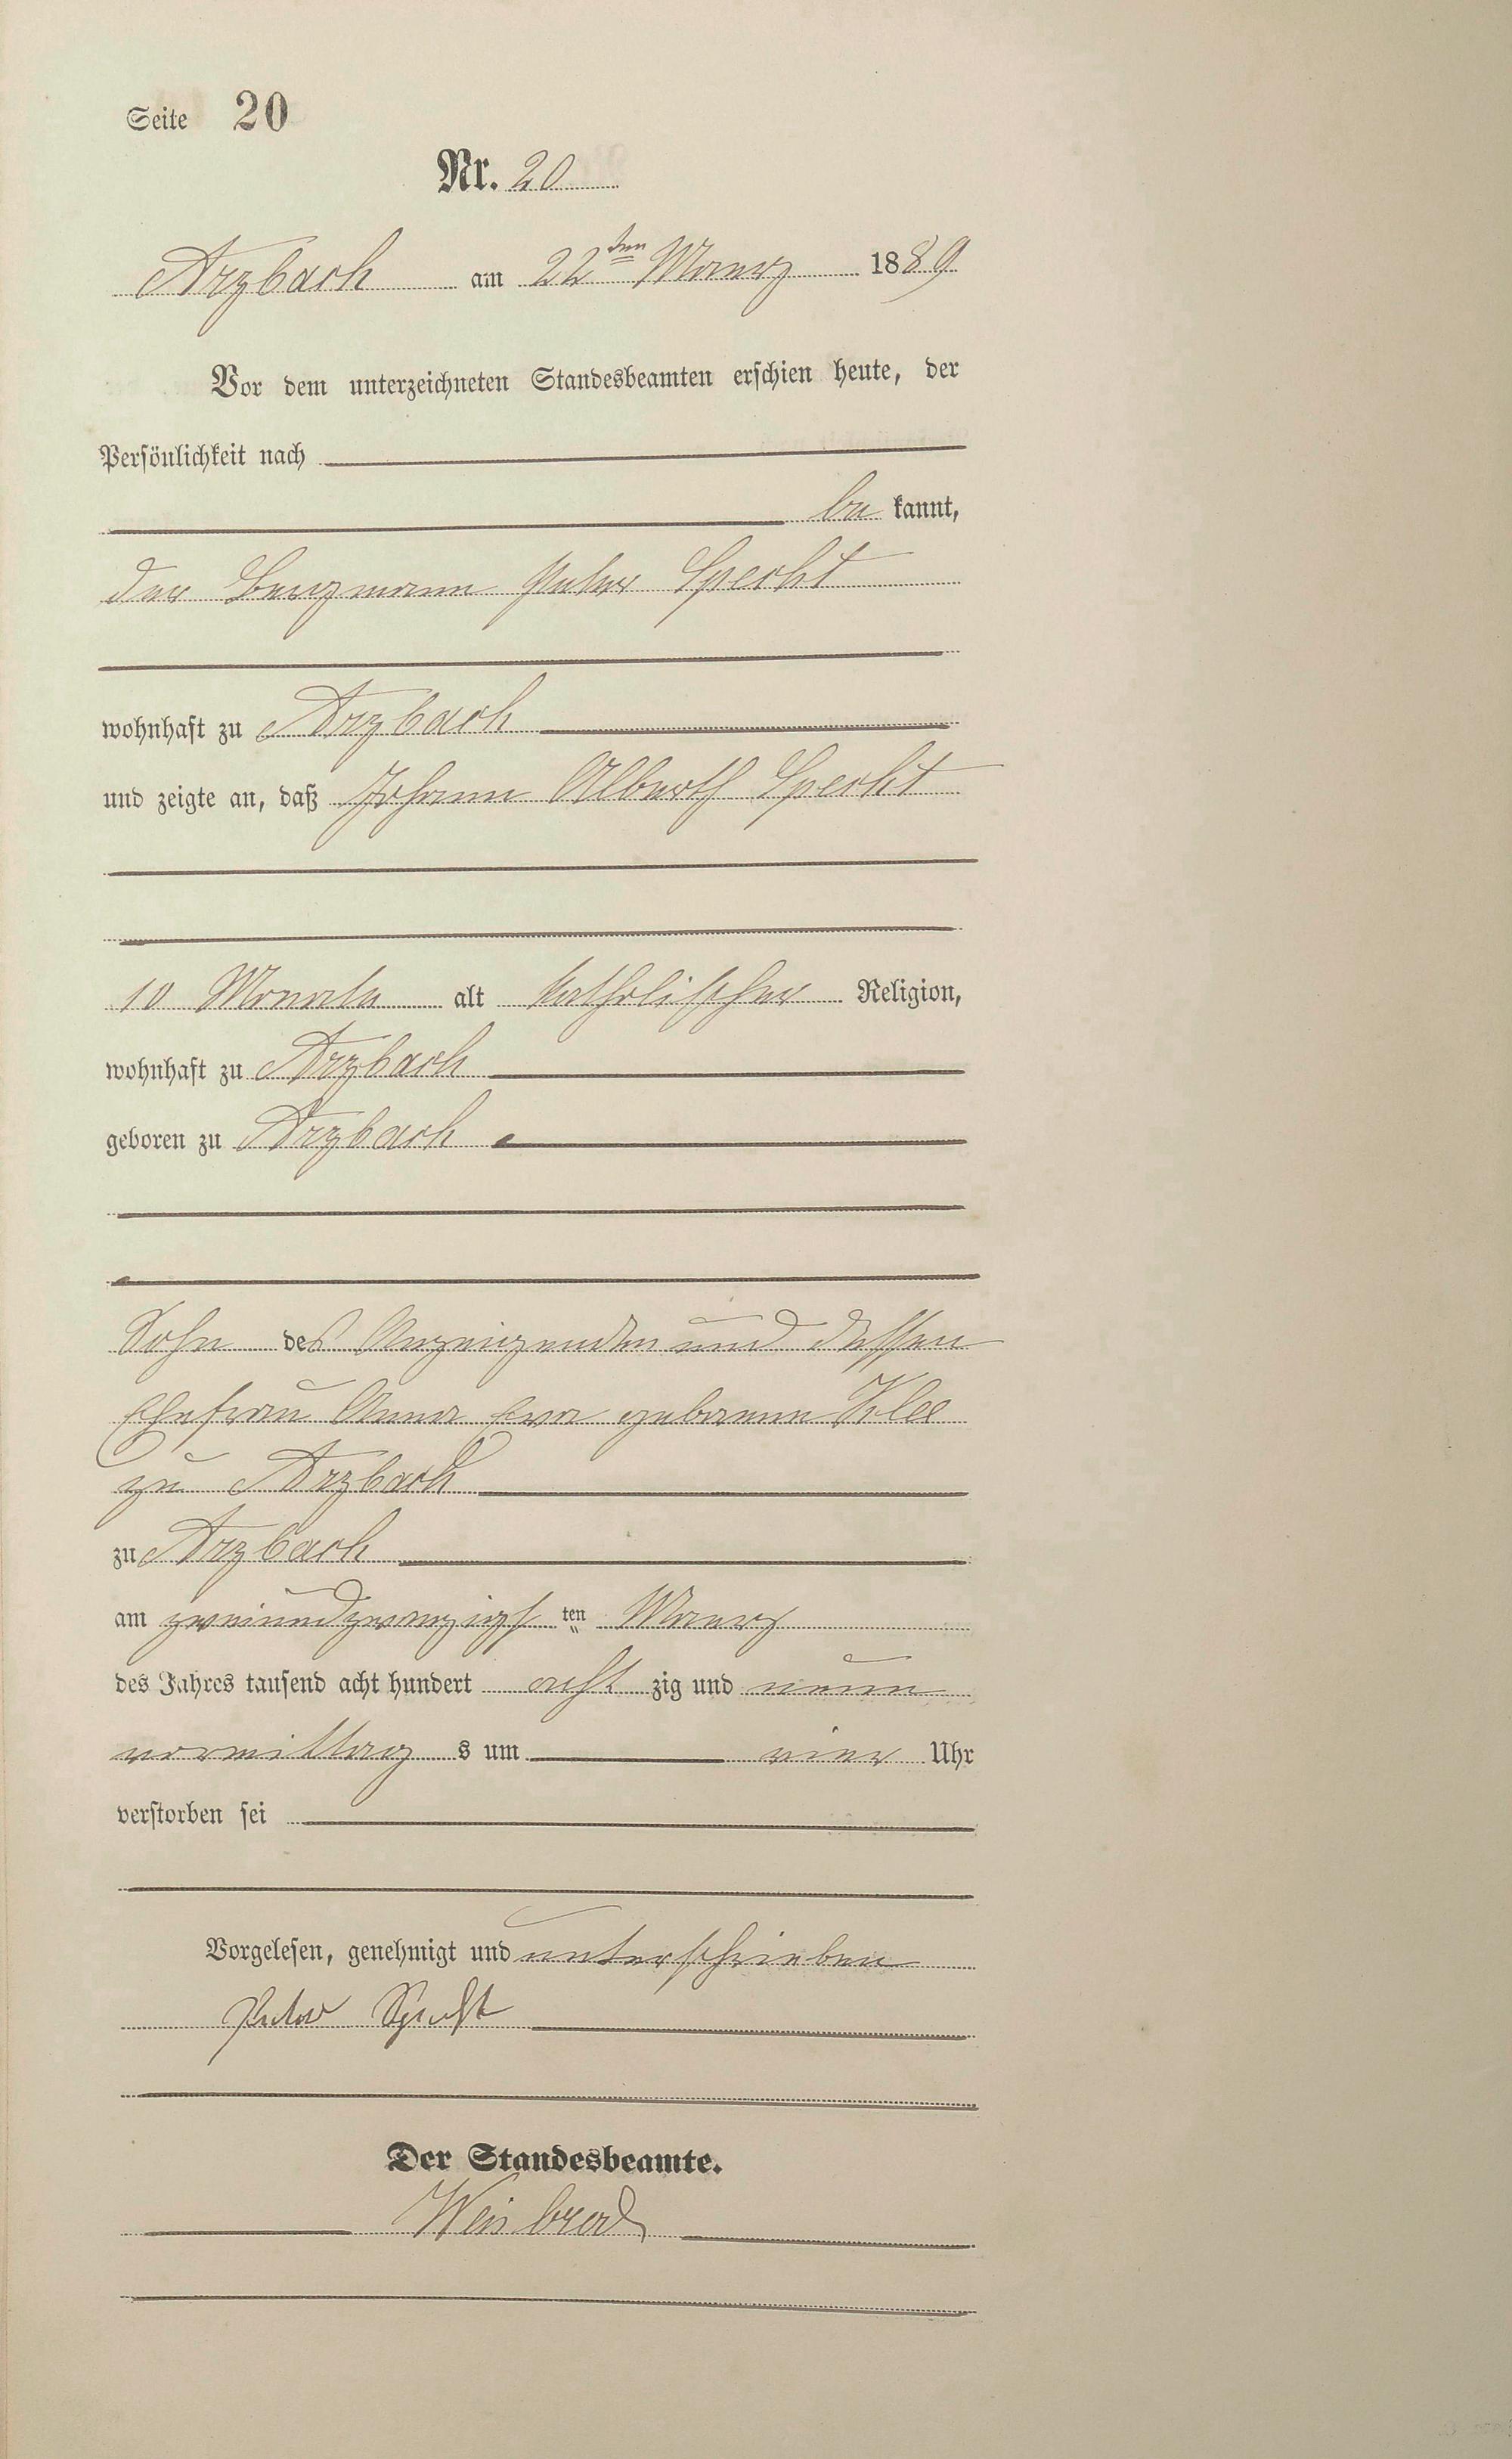 Seite 20
Nr. 20
Arzbach am 22ten Maerz 1889
Vor dem unterzeichneten Standesbeamten erschien heute, der
Persönlichkeit nach
be kannt,
der Bergmann Peter Specht
wohnhaft zu Arzbach
und zeigte an, daß Johann Alberth Specht
10 Monate alt katholischer Religion,
wohnhaft zu Arzbach
geboren zu Arzbach
Sohn des Anzeigenden und dessen
Ehefrau Anna Eva geborene Klee
zu Arzbach
zu Arzbach
am zweiundzwanzigsten Maerz
des Jahres tausend acht hundert acht zig und neun
vormittag s um vier Uhr
verstorben sei
Vorgelesen, genehmigt und unterschrieben
Peter Specht
Der Standesbeamte.
Weisbrod